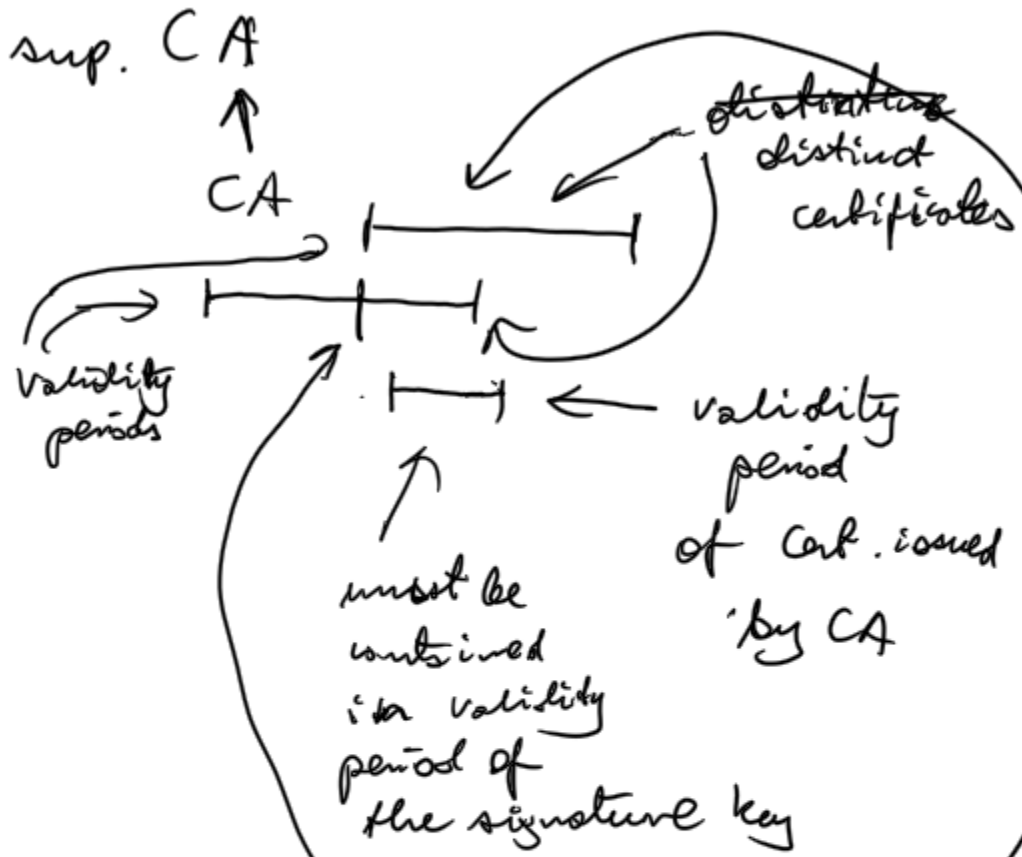 sup. CA
CA
distinct
certificates
validity
periods
validity
period
of Cert. issued
by CA
must be
contained
in validity
period of
the signature key